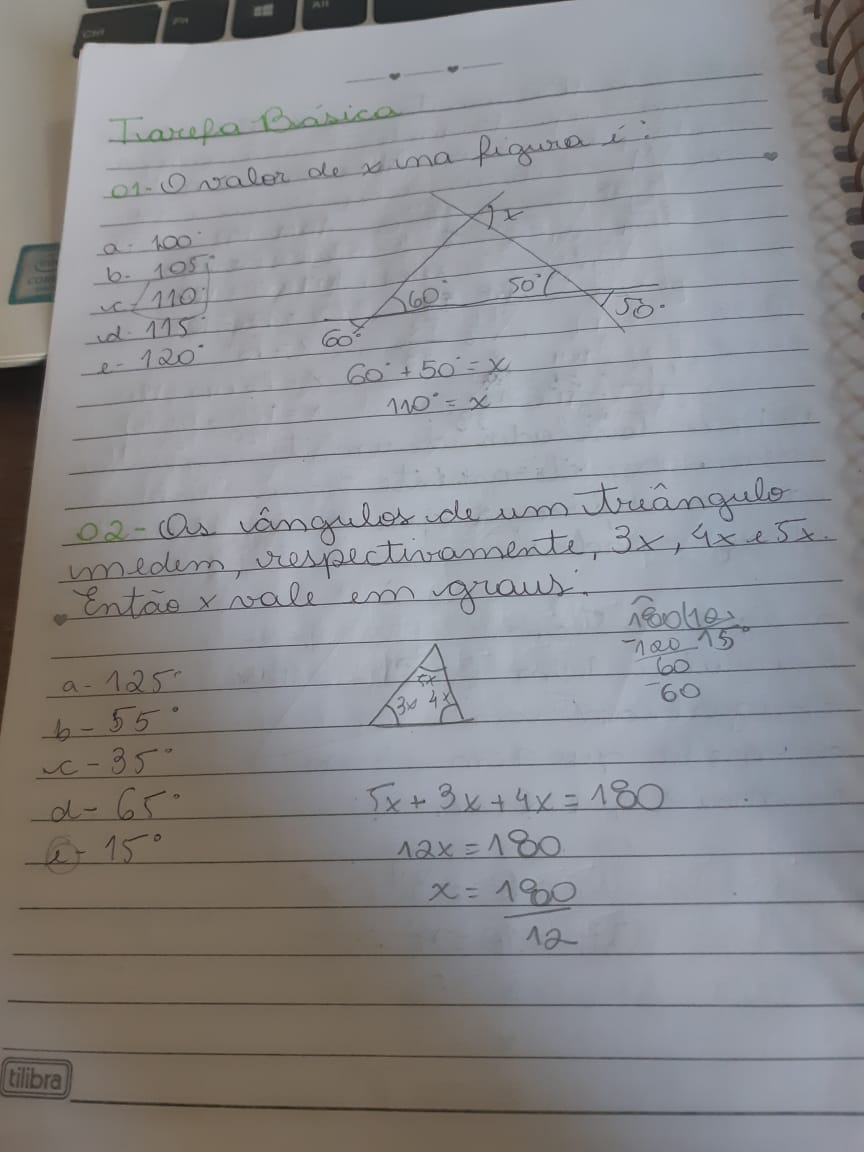 Tarefa Básica
01- O valor de x na figura é:
a- 100°
b- 105°
c- 110°
d- 115°
e- 120°
x
60°
50°
60°
50°
60° + 50° = x
110° = x
02- Os ângulos de um triângulo
medem, respectivamente, 3x, 4x e 5x.
Então x vale em graus:
180 12
-120 15°
60
-60
a- 125°
b- 55°
c- 35°
d- 65°
e- 15°
5x
3x 4x
5x + 3x + 4x = 180
12x = 180
x = 180
12
tilibra